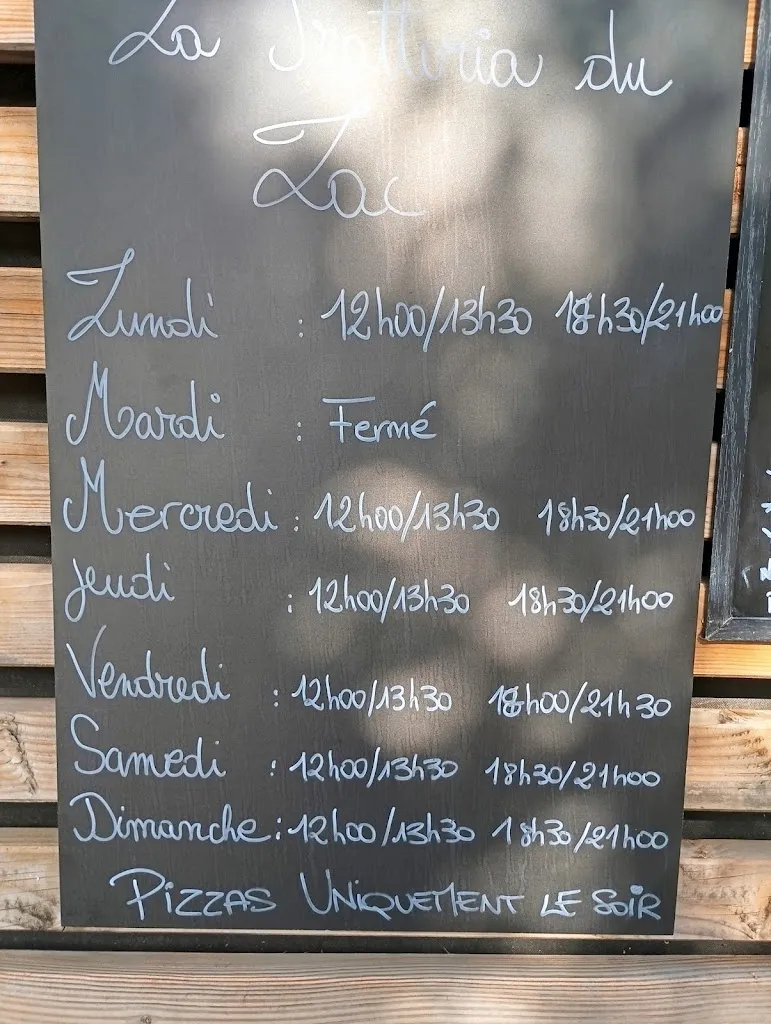 La Trattoria du
Lac
Lundi : 12h00/13h30 18h30/21h00
Mardi : Fermé
Mercredi : 12h00/13h30 18h30/21h00
Jeudi : 12h00/13h30 18h30/21h00
Vendredi : 12h00/13h30 18h00/21h30
Samedi : 12h00/13h30 18h30/21h00
Dimanche : 12h00/13h30 18h30/21h00
PIZZAS UNIQUEMENT LE SOIR